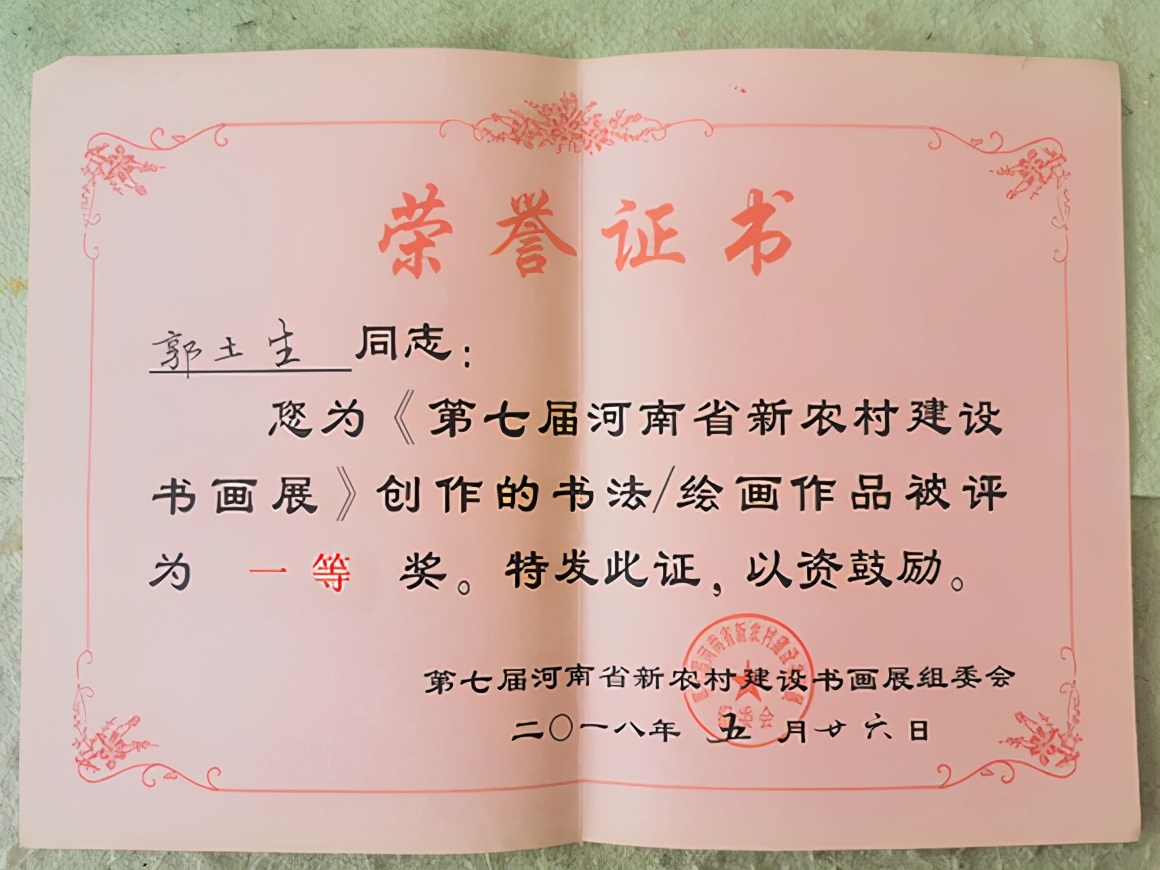 荣誉证书
郭土生 同志：
您为《第七届河南省新农村建设
书画展》创作的书法/绘画作品被评
为 一等 奖。特发此证，以资鼓励。
第七届河南省新农村建设书画展组委会
二〇一八年 五 月廿六日